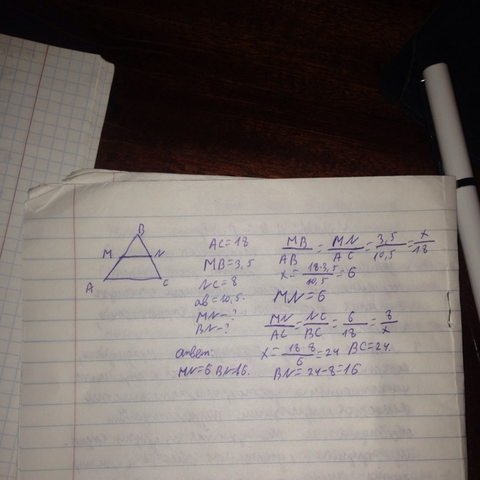 B
M N
A C
AC=18
MB=3,5
NC=8
ab=10,5.
MN-?
BN-?
MB/AB=MN/AC=3,5/10,5=x/18
x=18·3,5/10,5=6
MN=6
MN/AC=NC/BC=6/18=8/x
x=18·8/6=24 BC=24.
BN=24-8=16
ответ:
MN=6 BN=16.